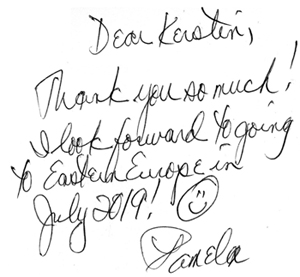 Dear Kerstin,
Thank you so much!
I look forward to going
to Eastern Europe in
July 2019!
Pamela